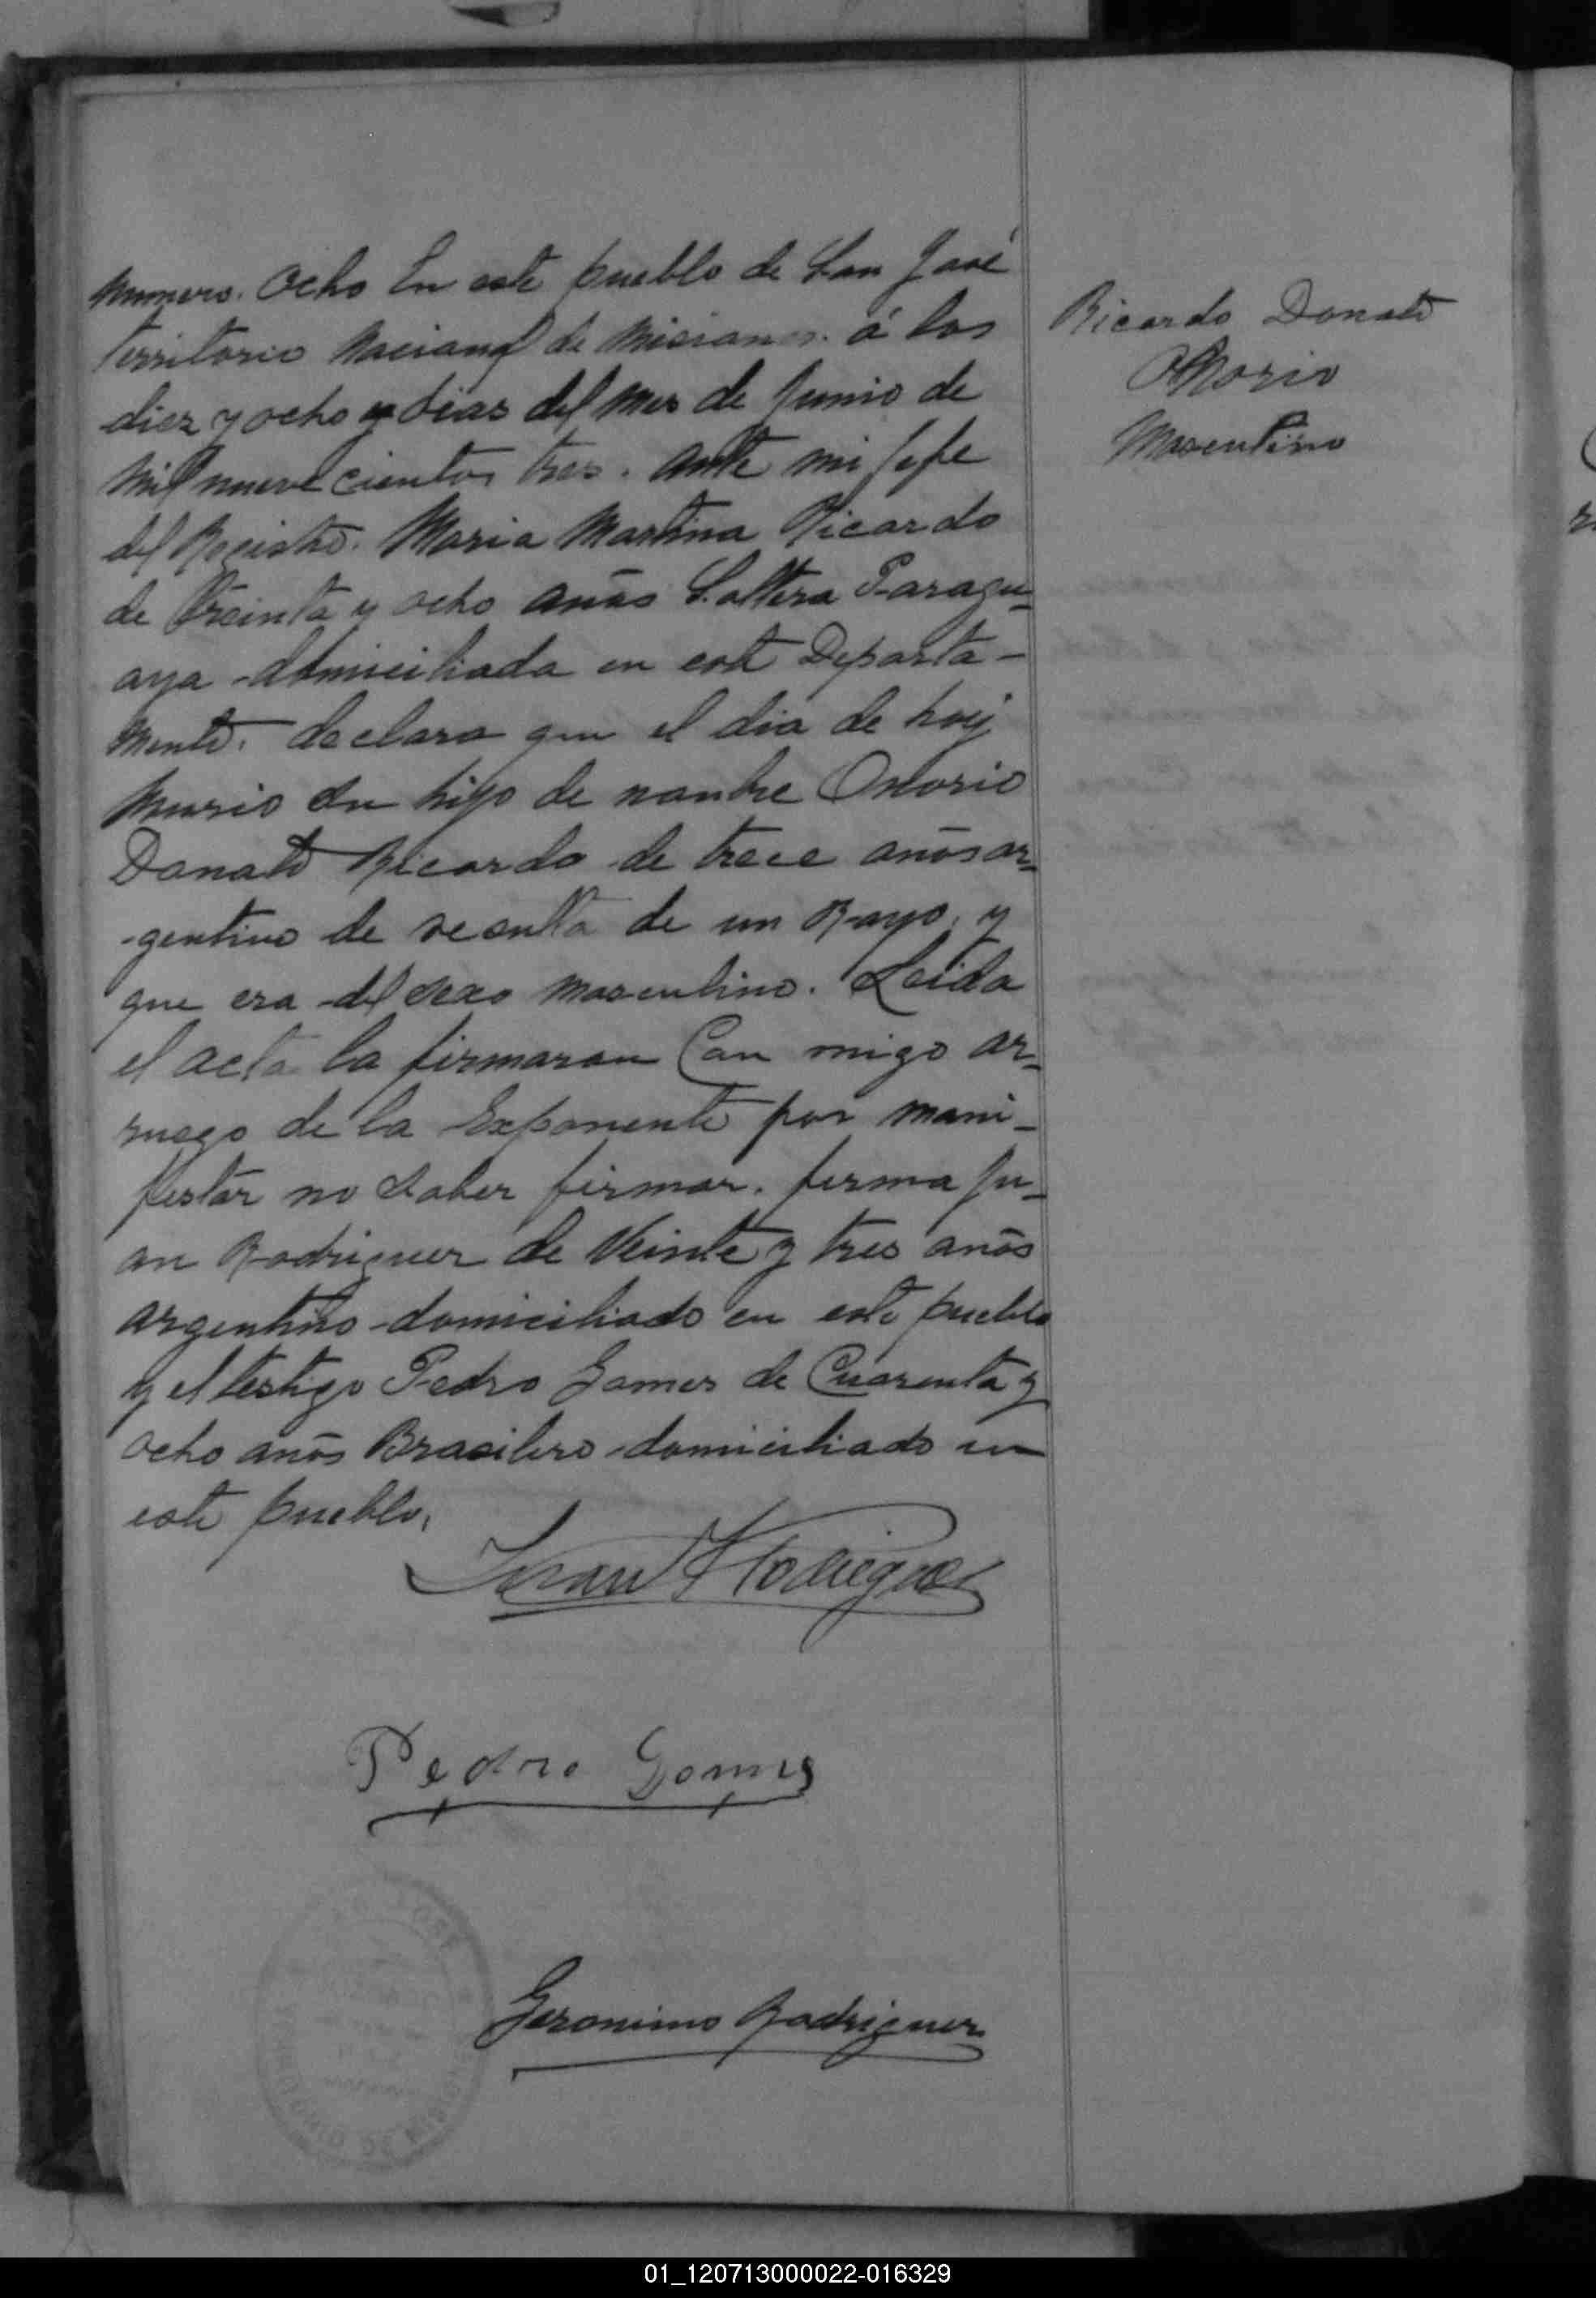 Numero. Ocho En este pueblo de San José
Territorio Nacional de Misiones. á los
diez y ocho y dias del mes de Junio de
Mil nueve cientos tres. Ante mi Jefe
del Registro. Maria Martina Ricardo
de Treinta y ocho años Soltera Paragu-
aya domiciliada en este Departa-
mento. declara que el dia de hoij
Murio su hijo de nombre Onorio
Donato Ricardo de trece años ar-
-gentino de resulta de un Rayo, y
que era del sexo masculino. Leida
el acta la firmaron Con migo ar-
ruego de la Exponente por mani-
festar no saber firmar. firma Ju-
an Rodriguez de Veinte y tres años
argentino domiciliado en este pueblo
y el testigo Pedro Gomes de Cuarenta y
ocho años Brasilero domiciliado en
este pueblo,
Juan Rodriguez
Pedro Gomes
Geronimo Rodriguez
Ricardo Donato
Onorio
Masculino
01_120713000022-016329